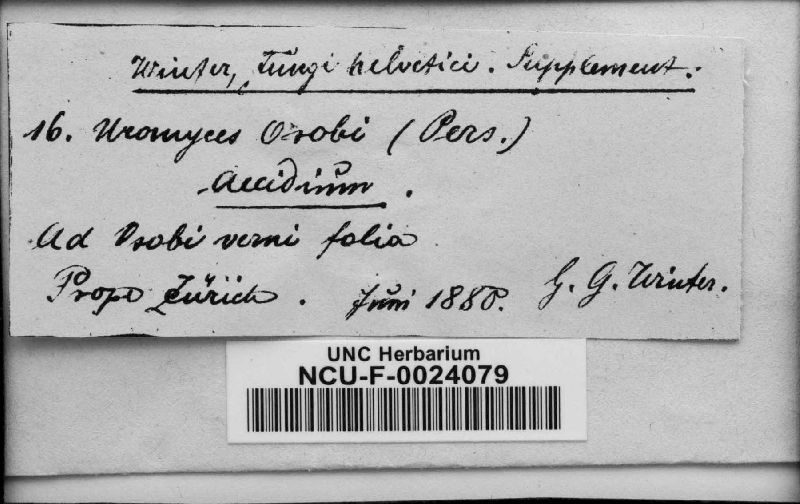 Winter, Fungi helvetici. Supplement.
16. Uromyces Orobi (Pers.)
Aecidium.
Ad Orobi verni folia
Prope Zürich. Juni 1880. G. G. Winter.
UNC Herbarium
NCU-F-0024079